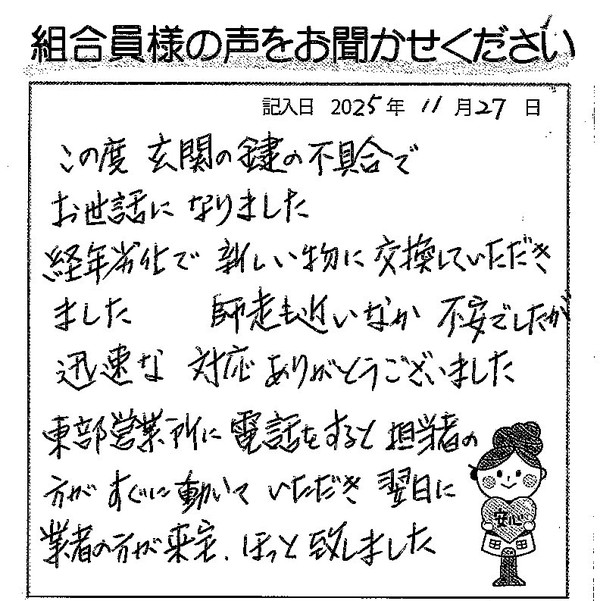 組合員様の声をお聞かせください
記入日 2025年 11月27日
この度 玄関の鍵の不具合で
お世話になりました
経年劣化で 新しい物に交換していただき
ました 師走も近いなか 不安でしたが
迅速な 対応ありがとうございました
東部営業所に電話をすると担当者の
方が すぐに動いて いただき 翌日に
業者の方が来宅、ほっと致しました
安心